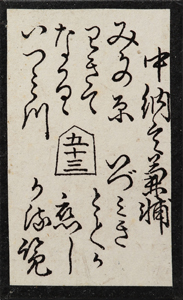 中納言兼輔
みかの原
わきて
なかるゝ
いつみ川
五十三
いづみき
とてか
恋し
か流覧